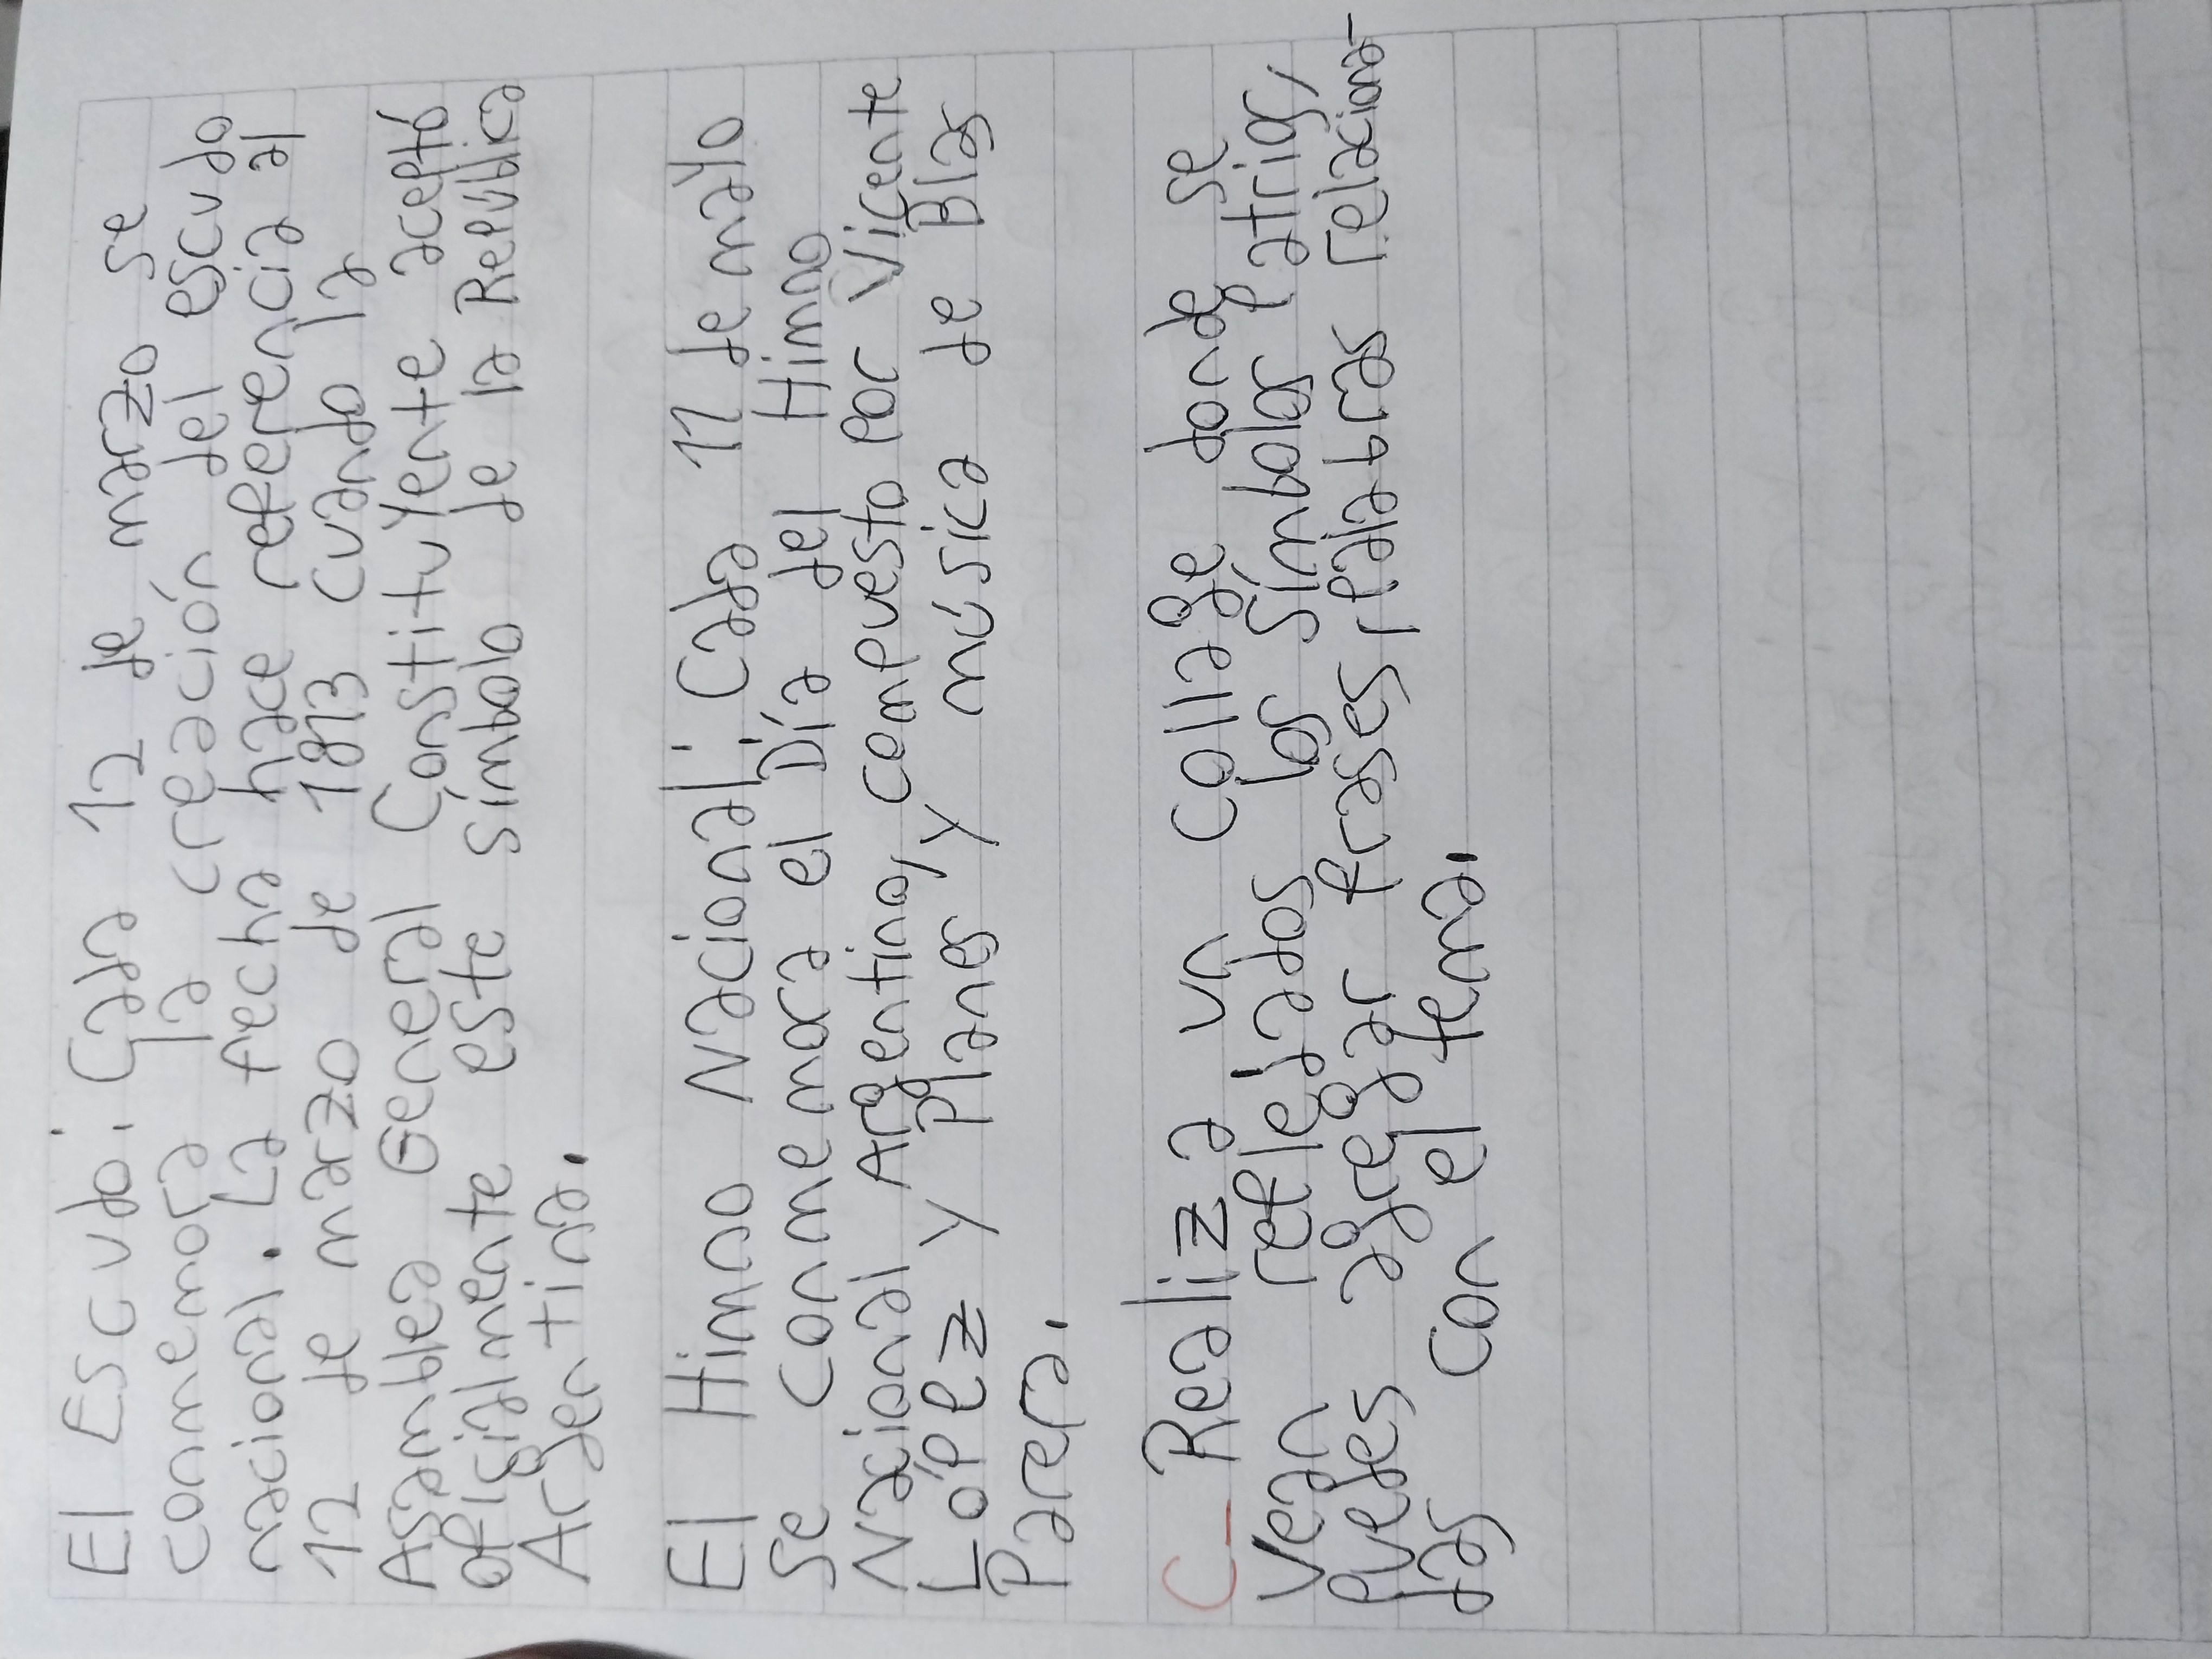 El Escudo: Cada 12 de marzo se
conmemora la creación del escudo
nacional. La fecha hace referencia al
12 de marzo de 1813 cuando la
Asamblea General Constituyente aceptó
oficialmente este símbolo de la República
Argentina.
El Himno Nacional: Cada 11 de mayo
se conmemora el Día del Himno
Nacional Argentino, compuesto por Vicente
López y Planes y música de Blas
Parera.
C_ Realiza un collage donde se
vean reflejados los símbolos patrios,
puedes agregar frases, palabras relaciona-
das con el tema.